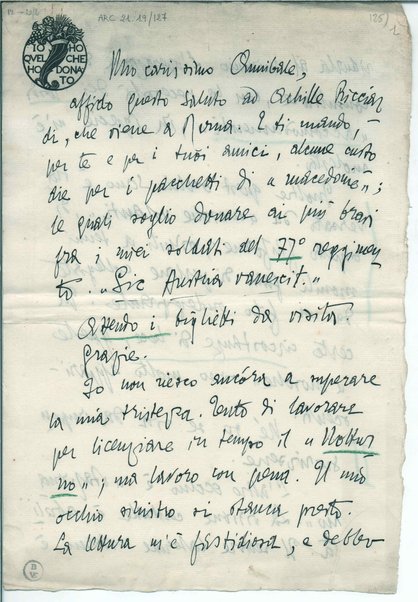 ARC 21.19/127
(25) 1
IO HO
QUEL CHE
HO DONA
TO
Mio carissimo Annibale,
affido questo saluto ad Achille Ricciar
di, che viene a Roma. E ti mando,
per te e per i tuoi amici, alcune custo
die per i pacchetti di « macedonie »;
le quali soglio donare ai più bravi
fra i miei soldati del 77° reggimen
to. « Sic Austria vanescit. »
Attendo i biglietti da visita.
Grazie.
Io non riesco ancóra a superare
la mia tristezza. Tento di lavorare
per licenziare in tempo il « Nottur
no »; ma lavoro con pena. Il mio
occhio sinistro si stanca presto.
La lettura m'è fastidiosa, e debbo
B
VE